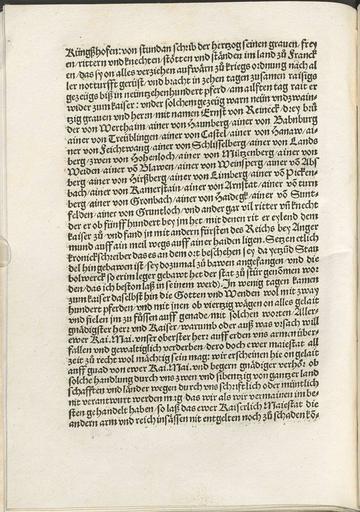 Rüngßhofen: von stundan schrib der hertzog seinen grauen/ frey
en/ rittern vnd knechten/ stötten vnd ständen im land zu Franck
en/ das sy on alles verziehen auff wärn zu kriegs ordnung nach al
ler notturfft gerüst/ vnd bracht in zehen tagen zusamen raisigs
gezeügs biß in neüntzehenhundert pferd/ am ailfften tag rait er
wider zum kaiser: vnder solchem gezeüg warn neün vnd zwaint
zig grauen vnd herrn/ mit namen Ernst von Reineck/ drey brü
der von Werthaim/ ainer von Haunberg/ ainer von Babnburg
ainer von Treüblingen/ ainer von Castel/ ainer von Hanaw/ ai
ner von Feichtwang/ ainer von Schlüsselberg/ ainer von Lands
berg/ zwen von Hohenloch/ ainer von Müntzenberg/ ainer von
Weiden/ ainer võ Blawen/ ainer von Weinsperg/ ainer võ Abs
berg/ ainer von Hirßberg/ ainer von Limberg/ ainer võ Picken
bach/ ainer von Kamerstain/ ainer von Arnstat/ ainer võ turn
berg/ ainer von Gronbach/ ainer von Haidegk/ ainer võ Sunt
felden/ ainer von Gruntloch/ vnd ander gar vil ritter vñ knecht
der er ob fünff hundert bey jm het/ mit denen rit er eylend dem
kaiser zu/ vnd fand jn mit andern fürsten des Reichs bey Anger
mund auff ain meil wegs auff ainer haiden ligen. Setzen etlich
kronickschreiber das es an dem ort beschehen sey da yetzund Stau
del hingebawen ist/ sey dozumal zu bawen angefangen/ vnd die
bolwerck so er inn leger gebawt/ het der stat zu stür genomen wor
den/ das ich beston laß in seinem werd). In wenig tagen kamen
zum kaiser daselbst hin die Gotten vnd Wenden wol mit zway
hundert pferden/ vnd mit jnen ob viertzig wägen on alles gelait
vnd fielen jm zu füssen auff genade/ mit solchen worten/ Aller
gnädigster herr vnd Kaiser/ warumb oder auß was vrsach will
ewer Kai. Mai. vnser oberster herr auff erden vns armen über
fallen vnd gewaltiglich verderben/ dero doch ewer maiestat all
zeit zu recht wol mächtig sein mag: wir erscheinen hie on gelait
auff guad von ewer Kai. Mai. vnd begern gnädiger verhör/ ob
solche handlung durch vns zwen vnd sibentzig von gantzer land
schafften vnd länder wegen durch vns schrifftlich oder müntlich
nit verantwurt werden mag/ das wir als wir vermainen im be
sten gehandelt haben/ so laß das ewer Kaiserlich Maiestat die
andern arm vnd reich insässen nit entgelten noch zu schaden kõ